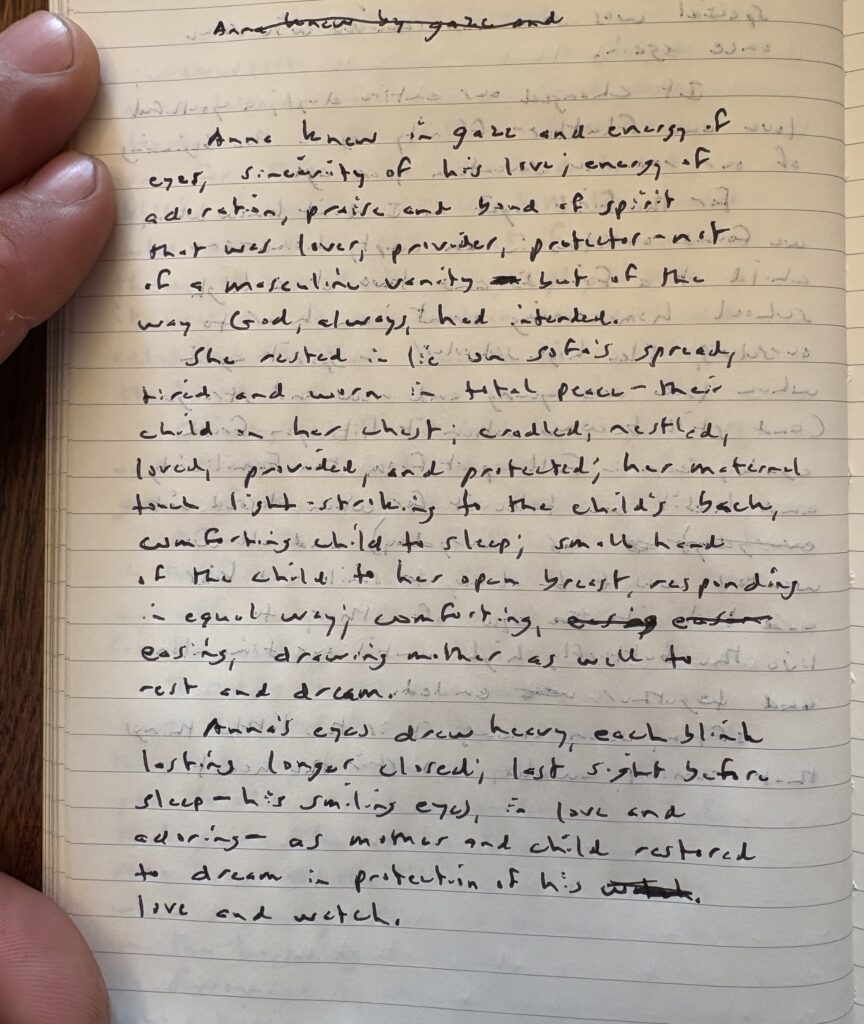 Anna knew by gaze and
Anna knew in gaze and energy of
eyes, sincerity of his love; energy of
adoration, praise and bond of spirit
that was lover, provider, protector – not
of a masculine vanity but of the
way God, always, had intended.
She rested in lie on sofa's spread,
tired and worn in total peace – their
child on her chest; cradled, nestled,
loved, provided, and protected; her maternal
touch light-striking to the child's back,
comforting child to sleep; small hand
of the child to her open breast, responding
in equal way; comforting, easing easing
easing, drawing mother as well to
rest and dream.
Anna's eyes drew heavy, each blink
lasting longer closed; last sight before
sleep – his smiling eyes, in love and
adoring – as mother and child restored
to dream in protection of his watch.
love and watch.